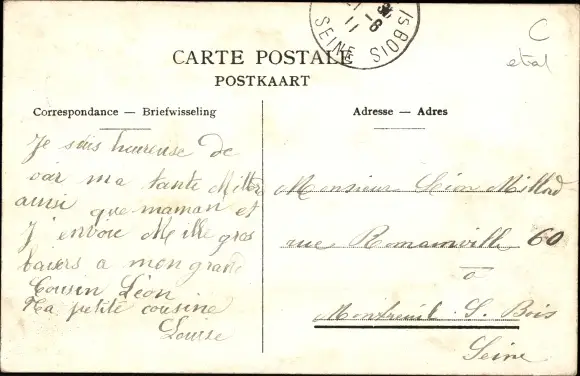 C
etat
21 - 8
11
IS BOIS
SEINE
CARTE POSTALE
POSTKAART
Correspondance — Briefwisseling
Adresse — Adres
Je suis heureuse de
voir ma tante
ainsi que maman et
J'envoie Mille gros
baisers a mon grand
Cousin Léon
Ta petite cousine
Louise
Monsieur Léon
rue Romainville 60
à
Montreuil S. Bois
Seine